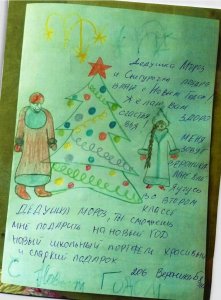 Дедушка Мороз
и Снегурочка поздрав
вляю с Новым Годом
Желаю вам
здоро
счастья
вья
меня
зовут
Я учусь
во втором
классе
ДЕДУШКА МОРОЗ, ТЫ СМОЖЕШЬ
МНЕ ПОДАРИТЬ НА НОВЫЙ ГОД
НОВЫЙ ШКОЛЬНЫЙ ПОРТФЕЛЬ КРАСИВЫЙ
И СЛАДКИЙ ПОДАРОК
С Новым Годом